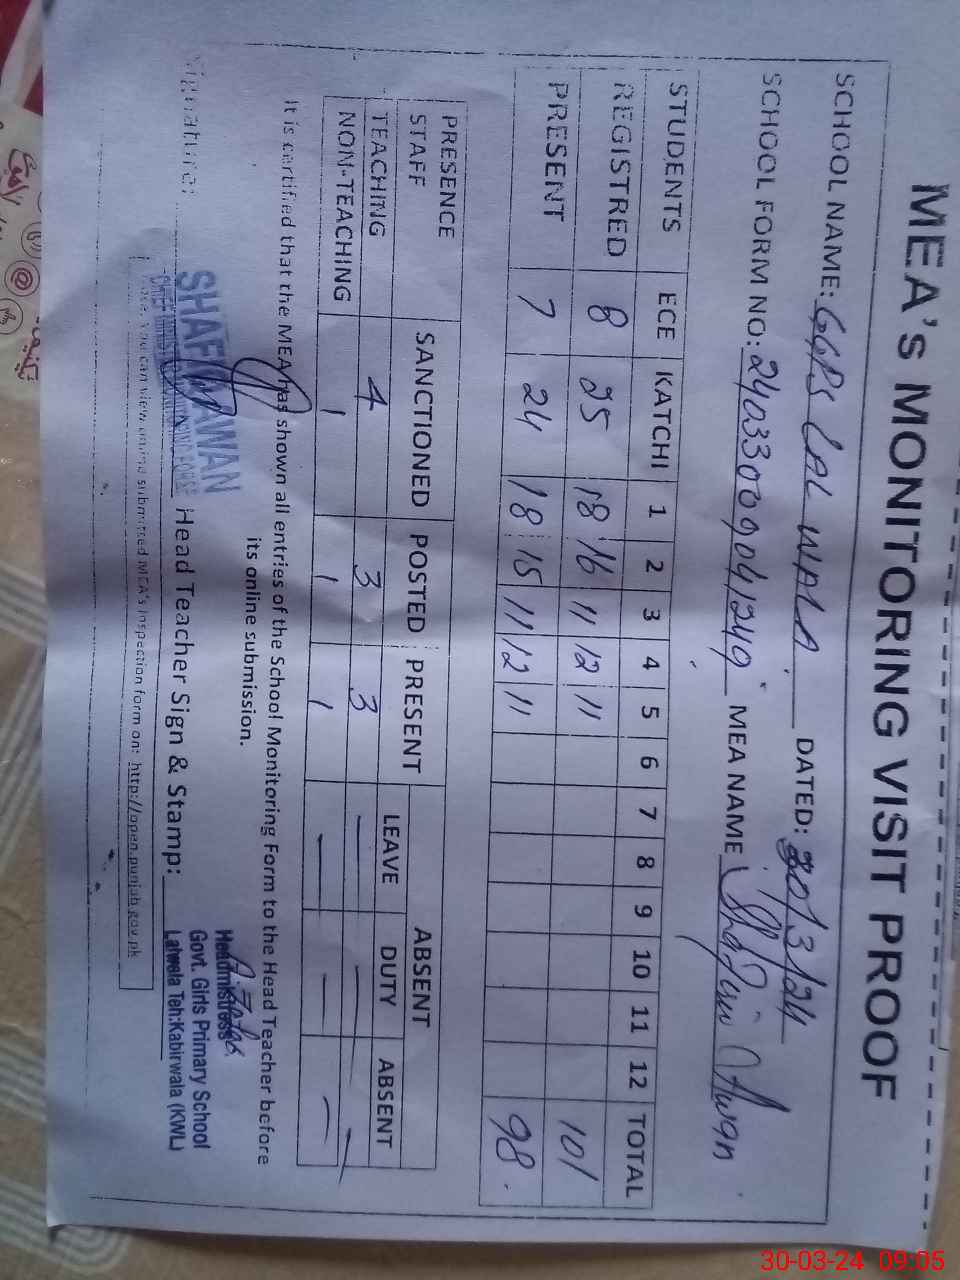 MEA's MONITORING VISIT PROOF
SCHOOL NAME: GGPS LAL WALA DATED: 30/3/24
SCHOOL FORM NO: 24033000904/1249 MEA NAME Awan
STUDENTS ECE KATCHI 1 2 3 4 5 6 7 8 9 10 11 12 TOTAL
REGISTRED 8 25 18 16 11 12 11 101
PRESENT 7 24 18 15 11 12 11 98
PRESENCE STAFF SANCTIONED POSTED PRESENT ABSENT
LEAVE DUTY ABSENT
TEACHING 4 3 3 — — —
NON-TEACHING 1 1 1 — — —
It is certified that the MEA has shown all entries of the School Monitoring Form to the Head Teacher before
its online submission.
Signature: Head Teacher Sign & Stamp:
AWAN
CHIEF
Headmistress
Govt. Girls Primary School
Lalwala Teh:Kabirwala (KWL)
You can view online submitted MEA's inspection form on: http://open.punjab.gov.pk
30-03-24 09:05